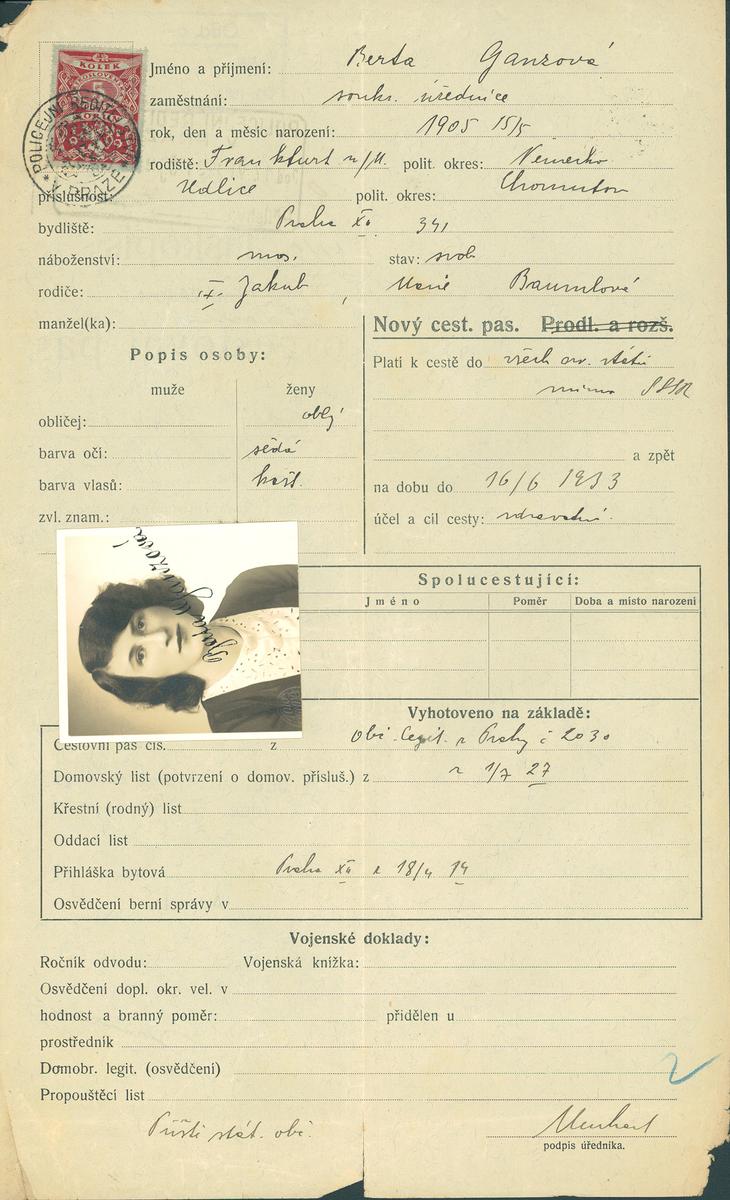 KOLEK
5
POLICEJNÍ ŘEDITEL
V PRAZE
Jméno a příjmení: Berta Ganzová
zaměstnání: soukr. úřednice
rok, den a měsíc narození: 1905 15/5
rodiště: Frankfurt n/M. polit. okres: Německo
příslušnost: Udlice polit. okres: Chomutov
bydliště: Praha XII 341
náboženství: mos. stav: svob
rodiče: Jakub, Marie Baumlová
manžel(ka):
Nový cest. pas. Prodl. a rozš.
Popis osoby:
Platí k cestě do všech ev. států
mimo SSSR
muže ženy
obličej: oblý
barva očí: šedá
a zpět
barva vlasů: kašt.
na dobu do 16/6 1933
zvl. znam.:
účel a cíl cesty: zdravotní.
Berta Ganzová
Spolucestující:
Jméno Poměr Doba a místo narození
Vyhotoveno na základě:
Cestovní pas čís. z obč. legit. z Prahy č 2030
Domovský list (potvrzení o domov. přísluš.) z z 1/7 27
Křestní (rodný) list
Oddací list
Přihláška bytová Praha XII z 18/4 14
Osvědčení berní správy v
Vojenské doklady:
Ročník odvodu: Vojenská knížka:
Osvědčení dopl. okr. vel. v
hodnost a branný poměr: přidělen u
prostředník
Domobr. legit. (osvědčení)
Propouštěcí list
stát. obč.
podpis úředníka.